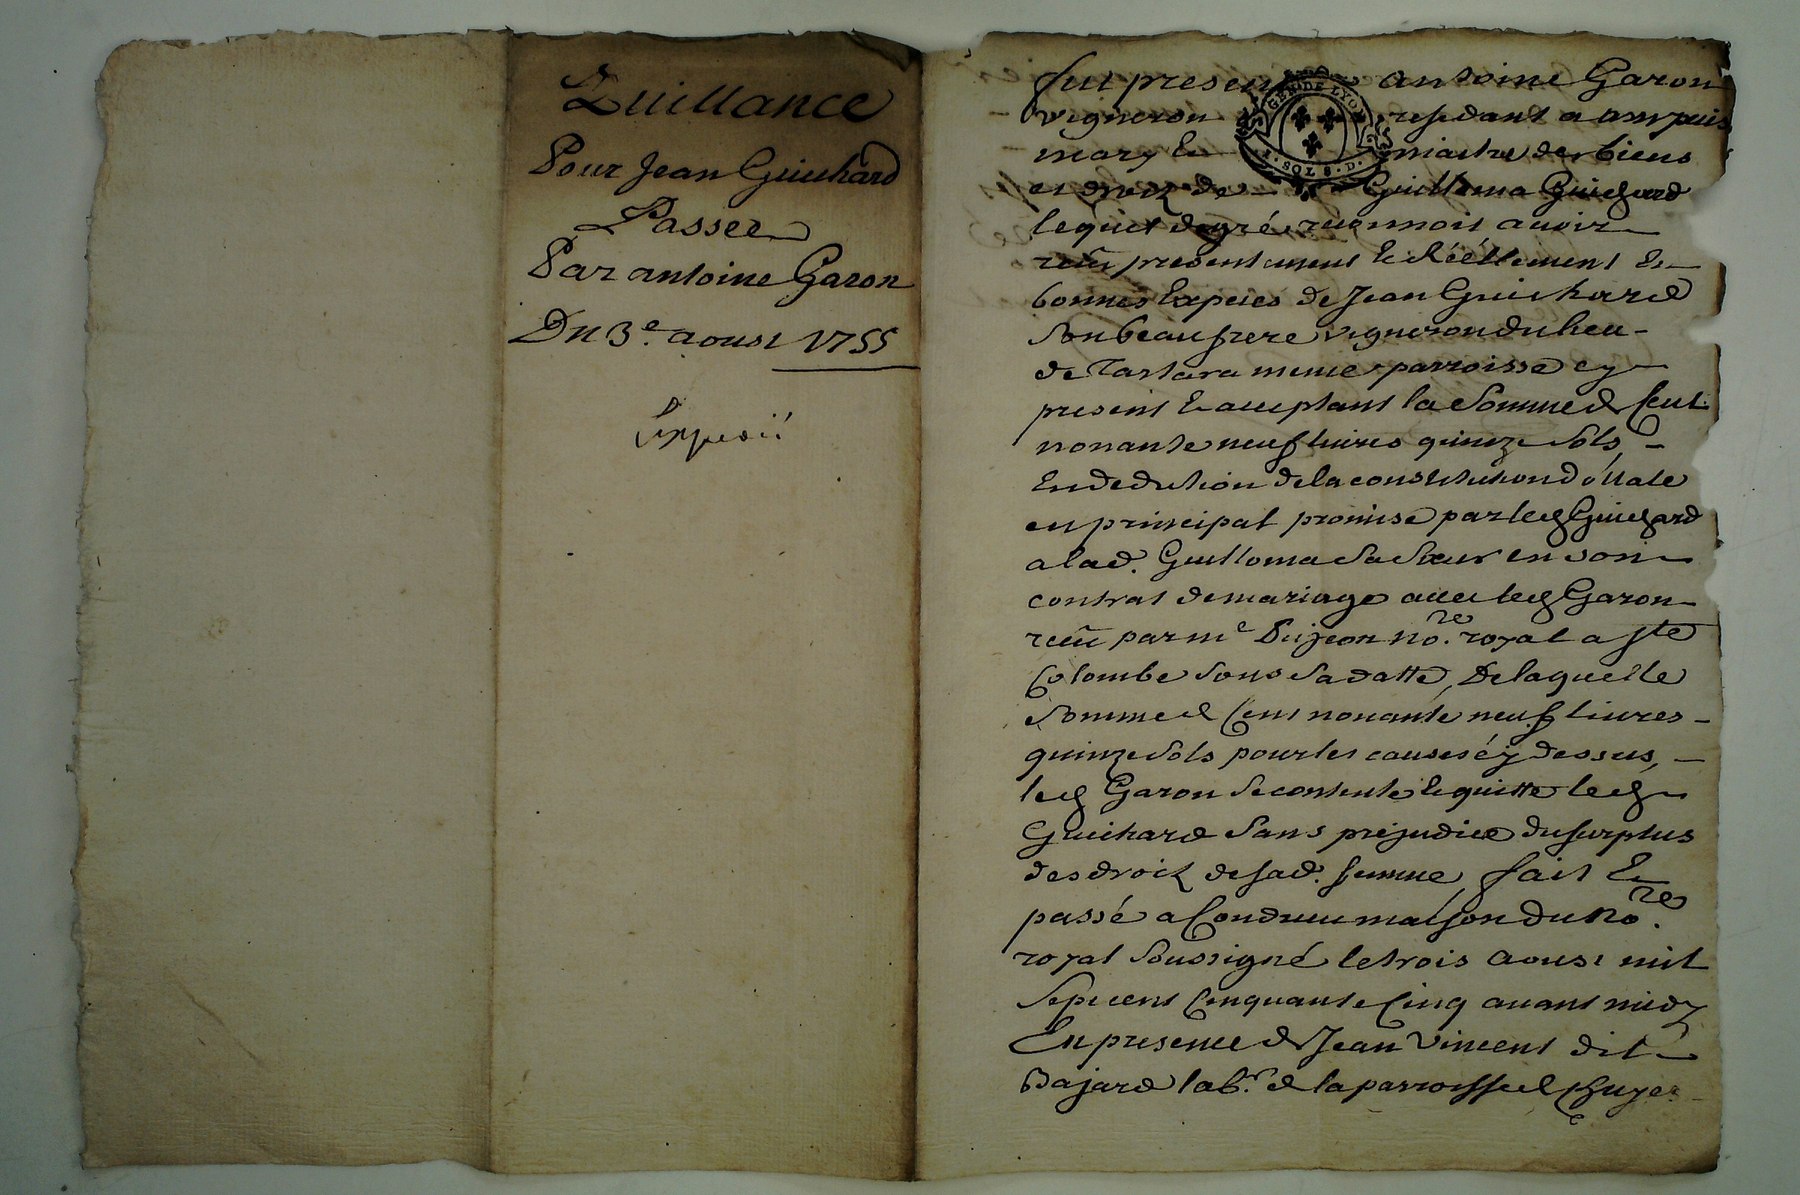 Quittance
Pour Jean Guichard
Passee
Par antoine Garon
Du 3e. aoust 1755
Expedié
GEN. DE LYON
SOLS. D.
fut present antoine Garon
vigneron residant a ampuis
mary Et maitre des biens
et droitz de Guilloma Guichard
lequel de gré reconnoit avoir
receu presentement Et Réellement En
bonnes Especes de Jean Guichard
Son beau frere vigneron du lieu
de Tartara meme parroisse cy
present Et acceptant la Somme de Cent
nonante neuf livres quinze Sols
En deduction de la constitution dottale
en principal promise par led Guichard
a lad. Guilloma Sa Sœur en son
contrat de mariage avec led Garon
receu par me Dujeon nore. royal a Ste
Colombe Sous Sa datte, De laquelle
Somme de Cent nonante neuf livres
quinze Sols pour les causes cy dessus,
led Garon Se contente Et quitte led
Guichard Sans prejudice du Surplus
des droitz de Sad. femme, fait Et
passé a Condrieu maison du nore.
royal Soussigné le trois aoust mil
Sept cent Cinquante Cinq avant midy
En presence de Jean Vincent dit
Bajard labr. de la parroisse de Chuyer